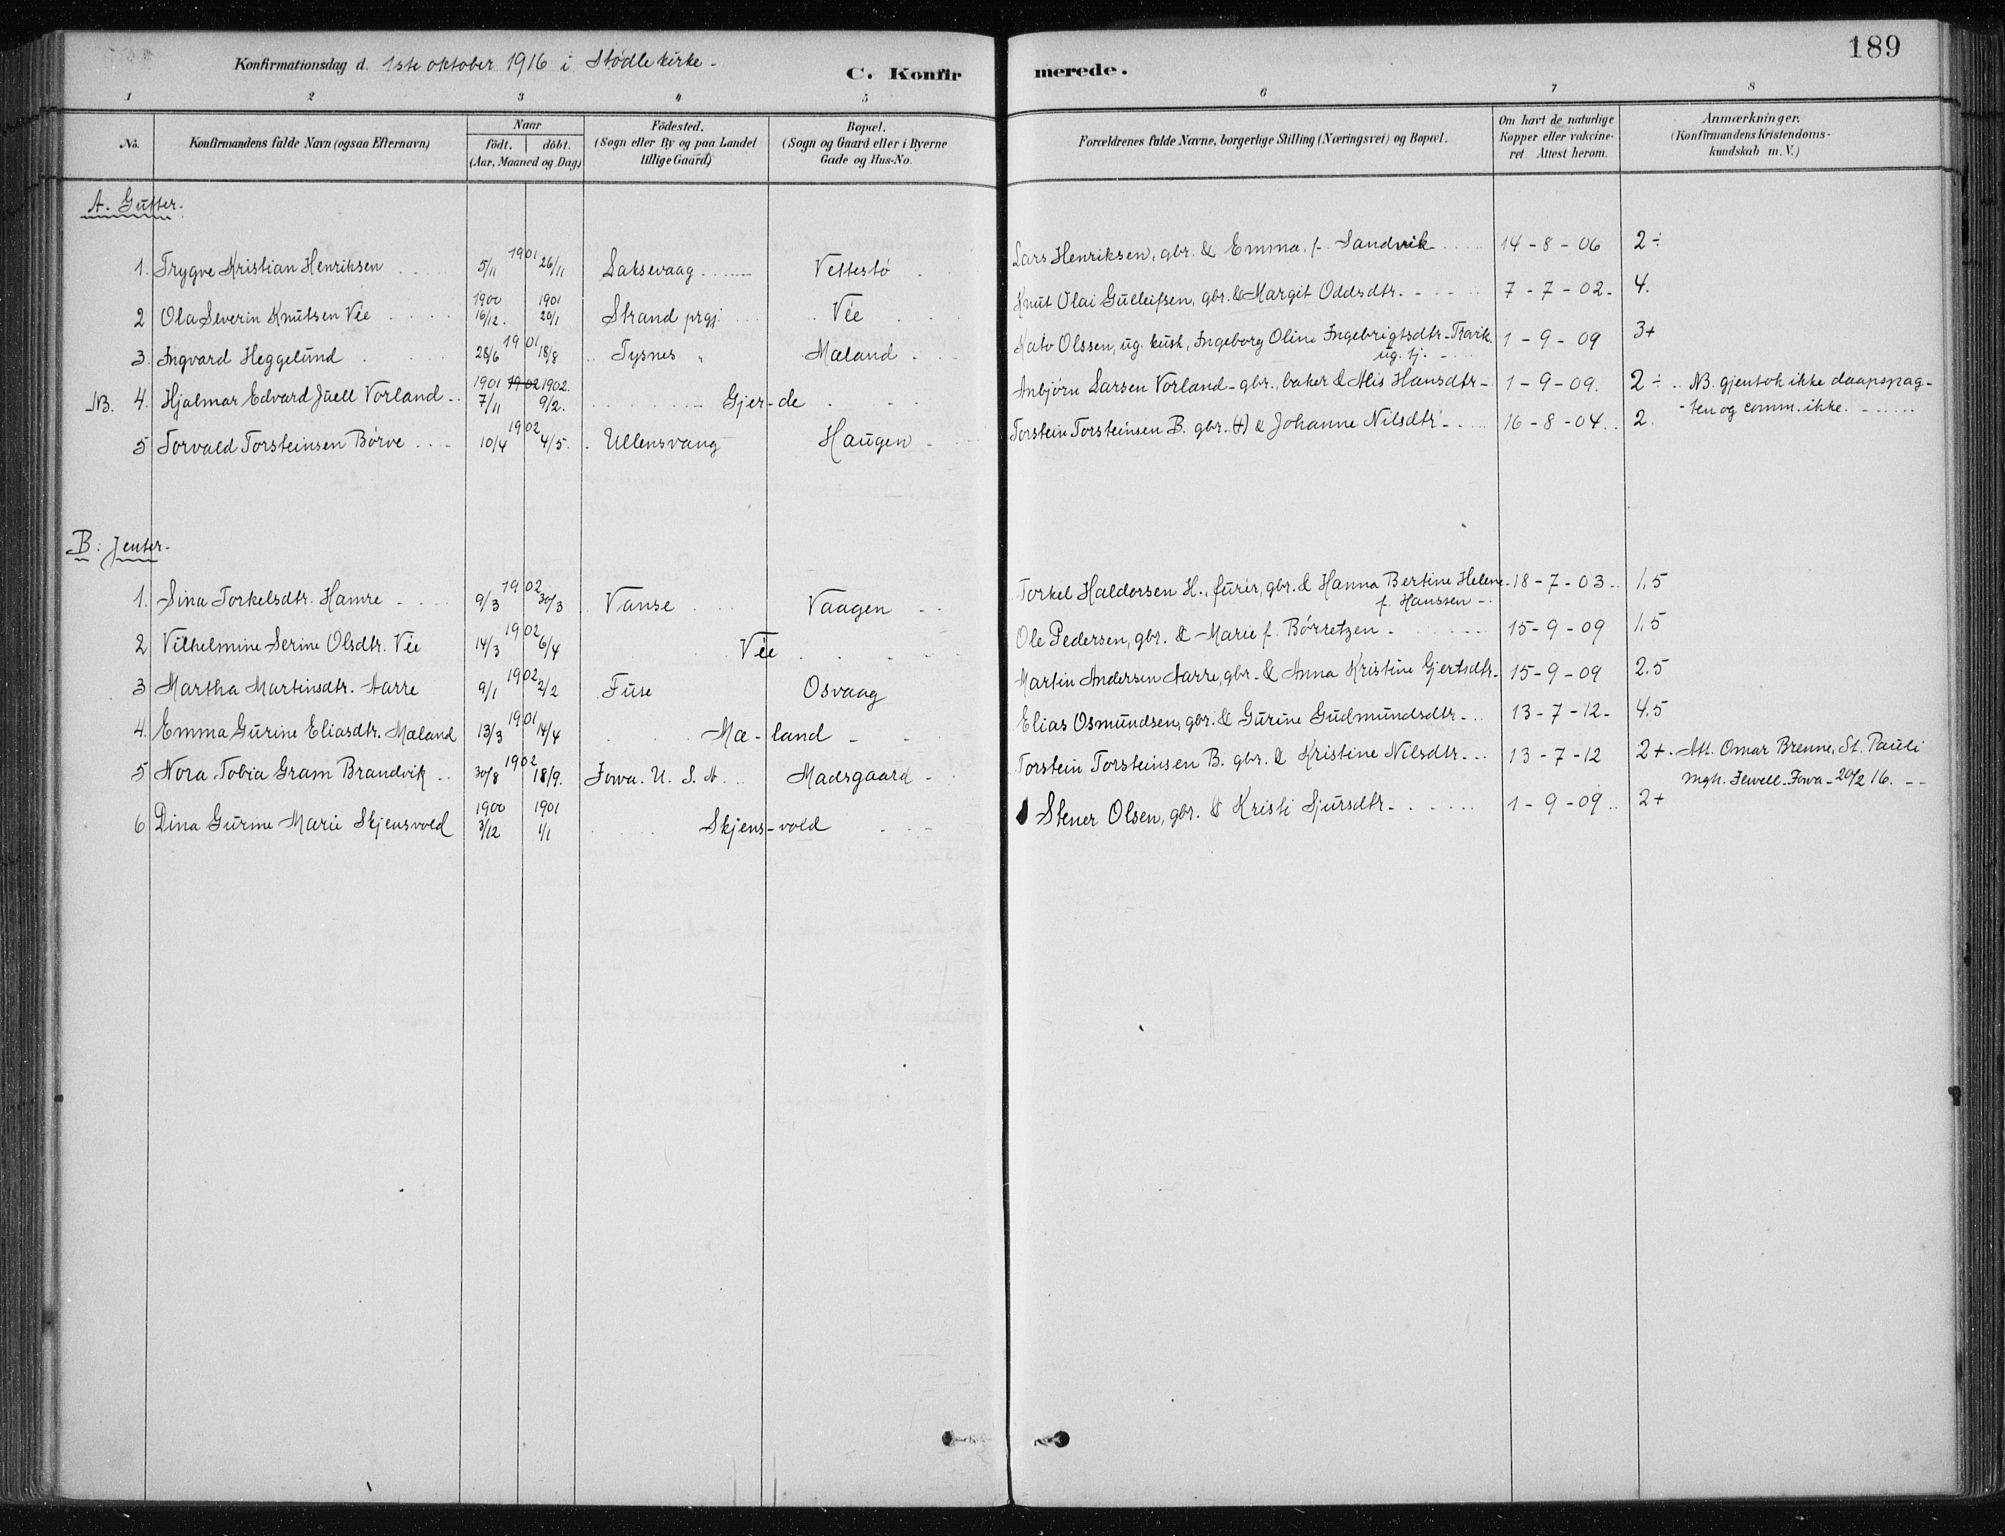 189
Konfirmationsdag d. 1ste oktober 1916 i Stødle kirke.
C. Konfirmerede.
1 2 3 4 5 6 7 8
No. Konfirmandens fulde Navn (ogsaa Efternavn) Naar født. døbt. (Aar, Maaned og Dag) Fødested. (Sogn eller By og paa Landet tillige Gaard) Bopæl. (Sogn og Gaard eller i Byerne Gade og Hus-No. Forældrenes fulde Navne, borgerlige Stilling (Næringsvei) og Bopæl. Om havt de naturlige Kopper eller vakcineret Attest herom. Anmærkninger. (Konfirmandens Kristendomskundskab m. V.)
A. Gutter.
1. Trygve Kristian Henriksen 1901 5/11 26/11 Laksevaag Vettestø Lars Henriksen, gbr. & Emma, f. Sandvik 14-8-06 2÷
2 Ola Severin Knutsen Vée 1900 16/12. 1901 20/1 Strand prgj Vée Knut Olai Gulleifsen, gbr. & Margit Oddsdtr. 7-7-02. 4.
3. Ingvard Heggelund 1901 28/6 18/8 Tysnes " Mæland Olssen, ug. kusk, Ingeborg Oline Ingebrigtsdtr. ug. tj. 1-9-09 3+
NB. 4. Hjalmar Edvard Juell Vorland 1901 1902 1902. 7/11 9/2. Gjer-de Anbjørn Larsen Vorland-gbr., baker & Alis Hansdtr 1-9-09. 2÷ NB. gjentok ikke daapspag-
ten og comm. ikke.
5 Torvald Torsteinsen Børve 1902 10/4 4/5. Ullensvang Haugen Torstein Torsteinsen B. gbr. (†) & Johanne Nilsdtr 16-8-04. 2.
B. Jenter.
1. Sina Torkelsdtr. Hamre 1902 9/3 30/3 Vanse Vaagen Torkel Haldorsen H., furér, gbr. & Hanna Bertine Helene f. Hanssen 18-7-03 1.5
2 Vilhelmine Serine Olsdtr. Vée 1902 14/3 6/4 Vée Ole Pedersen, gbr. & Marie f. Børretzen 15-9-09 1.5
3 Martha Martinsdtr. Aarre 1902 9/1 2/2 Fuse Osvaag Martin Andersen Aarre, gbr. & Anna Kristine Gjertsdtr 15-9-09 2.5
4. Emma Gurine Eliasdtr. Mæland 1901 13/3 14/4 Mæ-land Elias Osmundsen, gbr. & Gurine Gudmundsdtr 13-7-12 4.5
5 Nora Tobia Gram Brandvik 1902 30/8 18/9. Iowa. U. S. A. Madsgaard Torstein Torsteinsen B. gbr. & Kristine Nilsdtr 13-7-12 2+. Att. Omar Brenne, St. Pauli
mgh. Jewell. Iowa - 20/2 16.
6 Dina Gurine Marie Skjensvold 1900 3/12 1901 1/1 Skjens-vold Stener Olsen, gbr. & Kristi Sjursdtr 1-9-09 2+